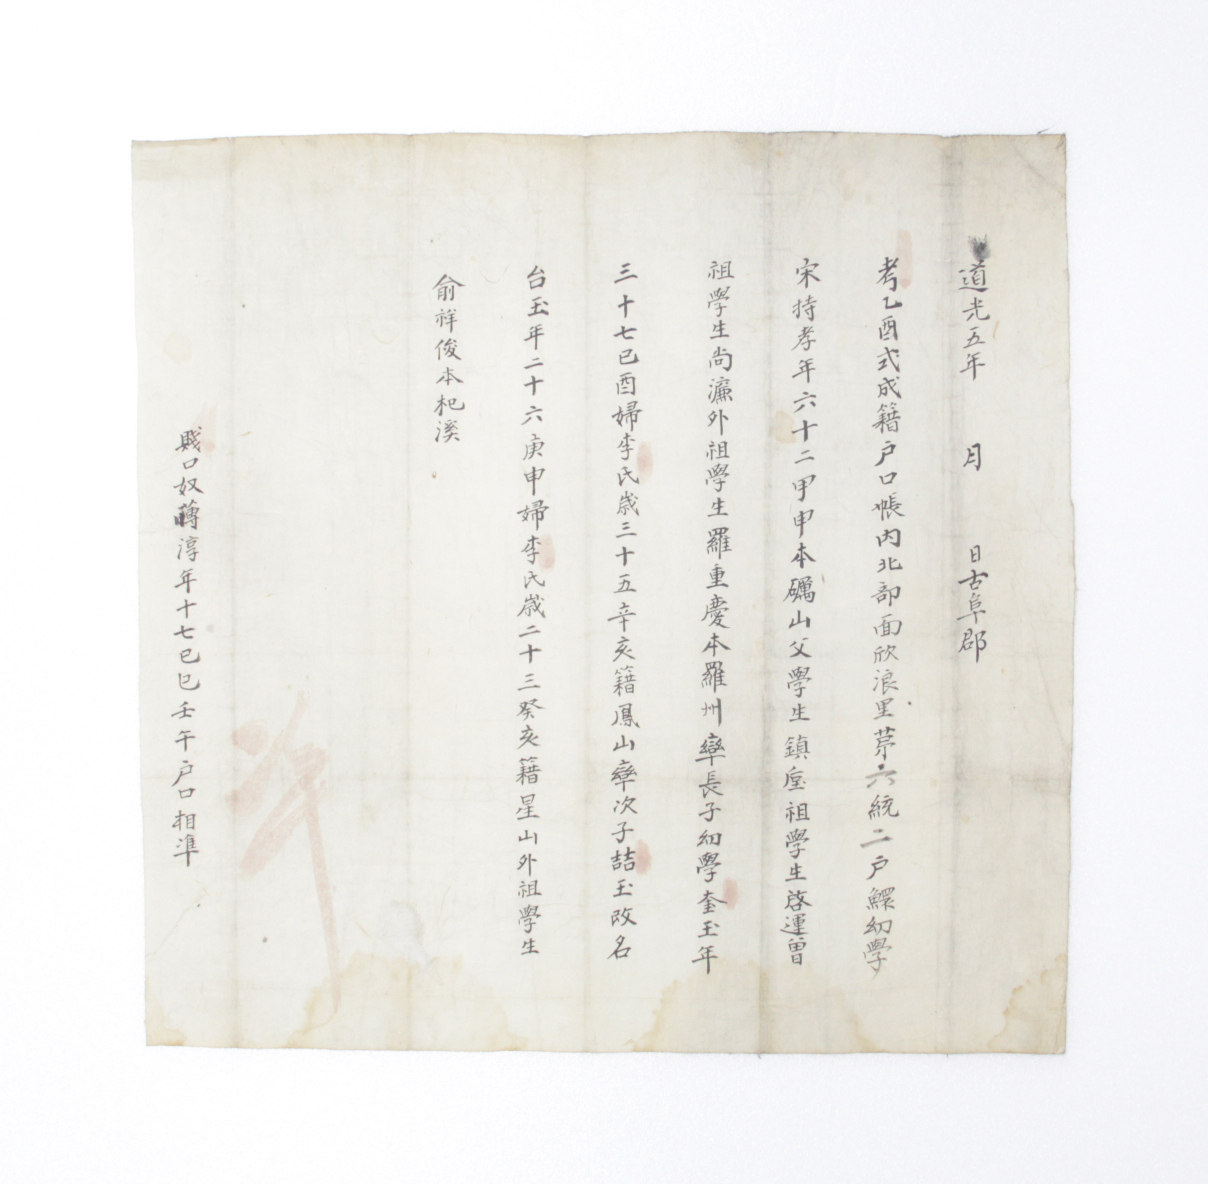 道光五年 月 日古阜郡
考乙酉式成籍户口帳內北部面欣浪里苐六統二户鰥幼學
宋持孝年六十二甲申本礪山父學生鎮垕祖學生啓運曾
祖學生尚濂外祖學生羅重慶本羅州率長子幼學奎玉年
三十七己酉婦李氏歲三十五辛亥籍鳳山率次子喆玉改名
台玉年二十六庚申婦李氏歲二十三癸亥籍星山外祖學生
俞祥俊本杞溪
賤口奴淳年十七己巳壬午户口相準
準